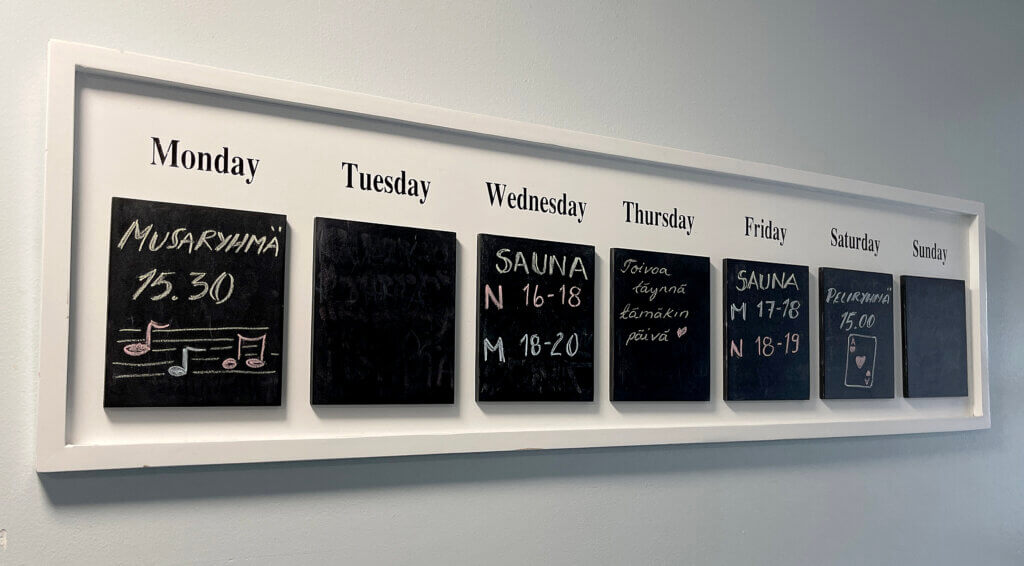 Monday
MUSARYHMÄ
15.30
Tuesday
Wednesday
SAUNA
N 16-18
M 18-20
Thursday
Toivoa
täynnä
tämäkin
päivä
Friday
SAUNA
M 17-18
N 18-19
Saturday
PELIRYHMÄ
15.00
A
A
Sunday